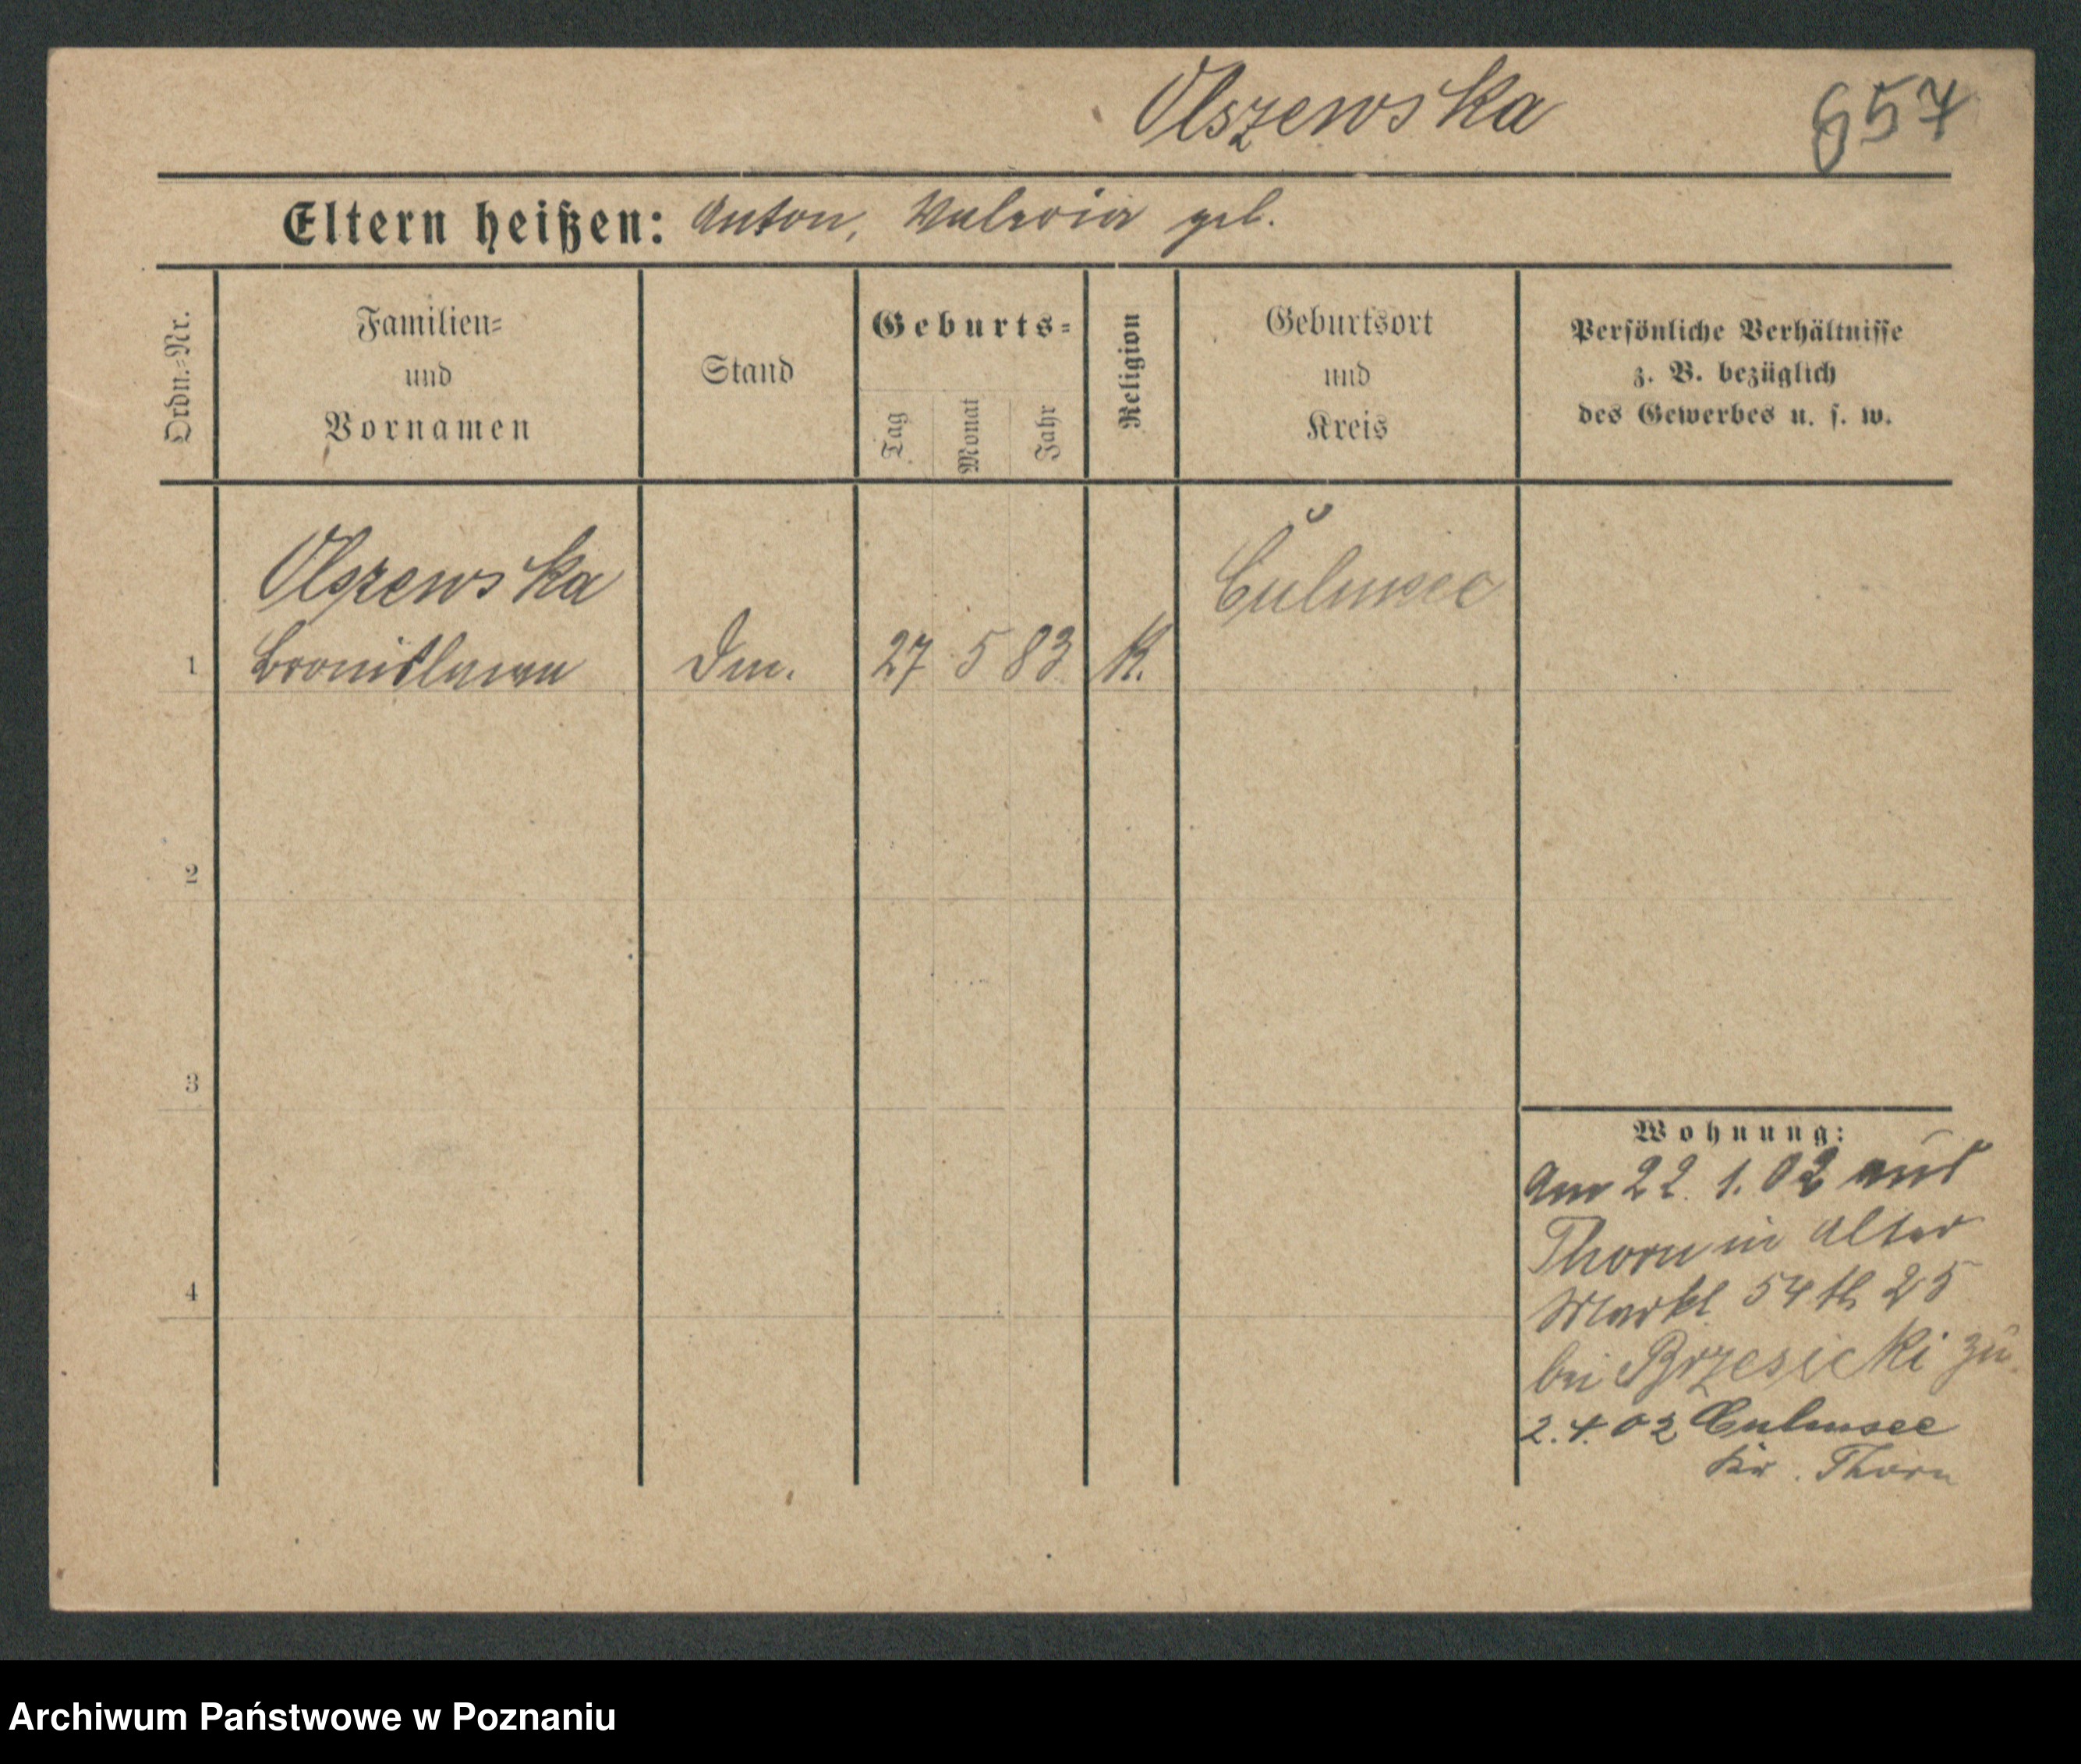 Olszewska 657
Eltern heißen: Anton, Valeria geb.
Ordn.=Nr.
Familien=
und
Vornamen
Stand
Geburts=
Tag
Monat
Jahr
Religion
Geburtsort
und
Kreis
Persönliche Verhältnisse
z. B. bezüglich
des Gewerbes u. s. w.
Olszewska
1 Bronislawa Dm. 27 5 83 K.
Culmsee
2
3
4
Wohnung:
Am 22. 1. 02 aus
Thorn in Alter
Markt 54 II 25
bei Brzesicki zu.
2. 4. 02 Culmsee
Kr. Thorn
Archiwum Państwowe w Poznaniu